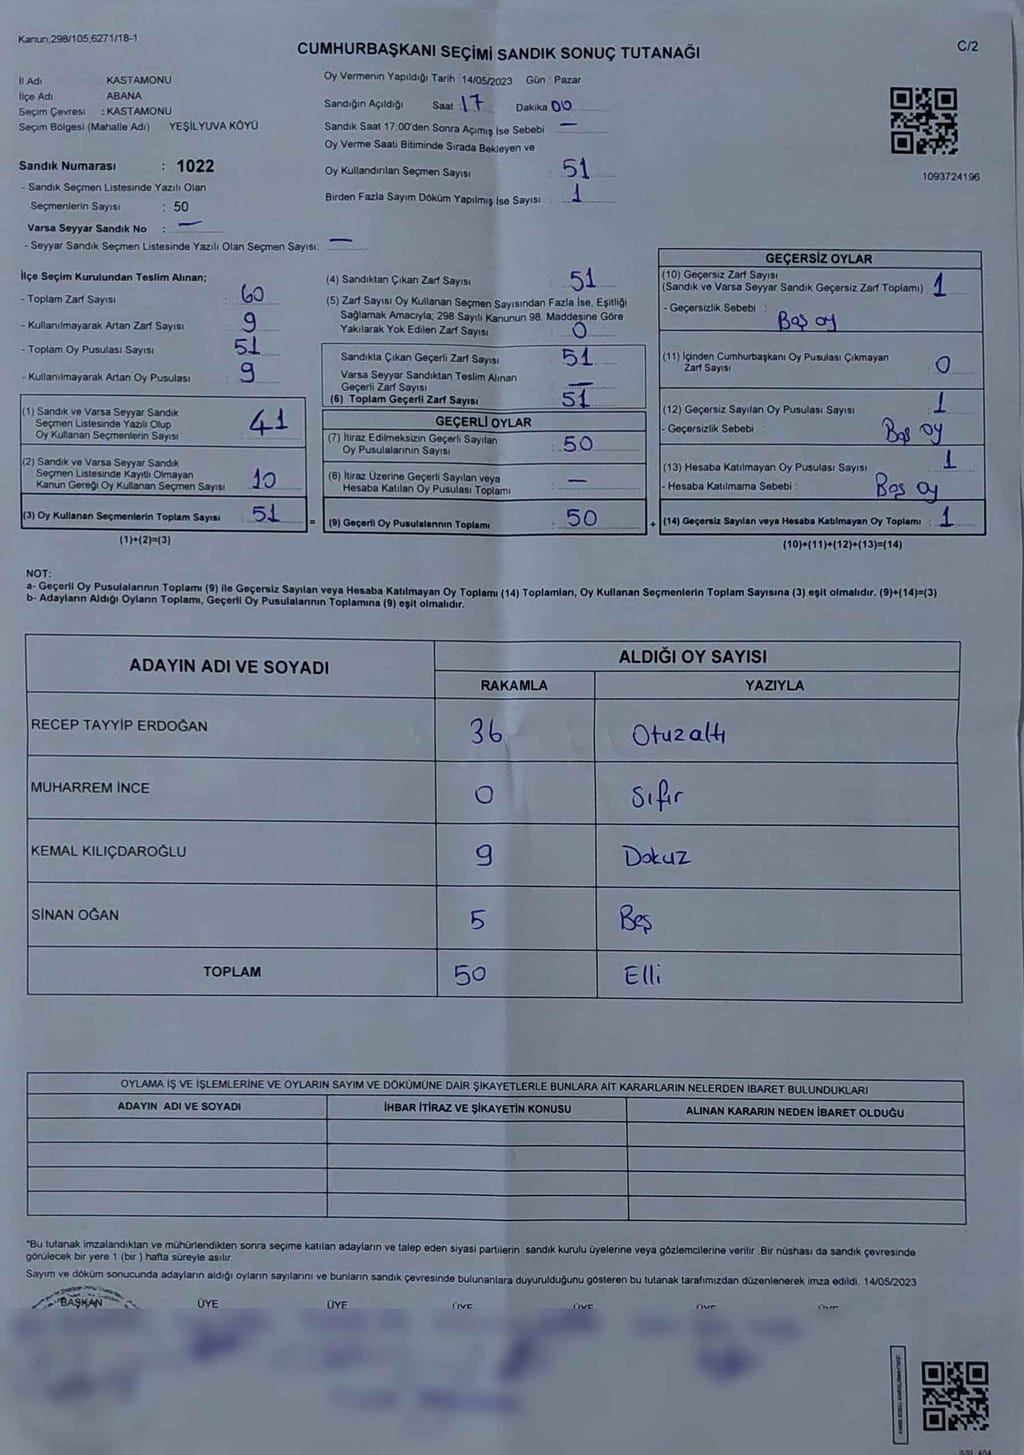 Kanun;298/105;6271/18-1
CUMHURBAŞKANI SEÇİMİ SANDIK SONUÇ TUTANAĞI
C/2
İl Adı KASTAMONU
İlçe Adı : ABANA
Seçim Çevresi : KASTAMONU
Seçim Bölgesi (Mahalle Adı) YEŞİLYUVA KÖYÜ
Sandık Numarası : 1022
- Sandık Seçmen Listesinde Yazılı Olan
Seçmenlerin Sayısı : 50
Varsa Seyyar Sandık No : —
- Seyyar Sandık Seçmen Listesinde Yazılı Olan Seçmen Sayısı: —
Oy Vermenin Yapıldığı Tarih : 14/05/2023 Gün : Pazar
Sandığın Açıldığı Saat : 17 Dakika 00
Sandık Saat 17:00'den Sonra Açımış İse Sebebi —
Oy Verme Saati Bitiminde Sırada Bekleyen ve
Oy Kullandırılan Seçmen Sayısı : 51
Birden Fazla Sayım Döküm Yapılmış İse Sayısı : 1
1093724196
İlçe Seçim Kurulundan Teslim Alınan;
- Toplam Zarf Sayısı : 60
- Kullanılmayarak Artan Zarf Sayısı : 9
- Toplam Oy Pusulası Sayısı : 51
- Kullanılmayarak Artan Oy Pusulası : 9
(1) Sandık ve Varsa Seyyar Sandık
Seçmen Listesinde Yazılı Olup
Oy Kullanan Seçmenlerin Sayısı : 41
(2) Sandık ve Varsa Seyyar Sandık
Seçmen Listesinde Kayıtlı Olmayan
Kanun Gereği Oy Kullanan Seçmen Sayısı : 10
(3) Oy Kullanan Seçmenlerin Toplam Sayısı : 51
(1)+(2)=(3)
(4) Sandıktan Çıkan Zarf Sayısı : 51
(5) Zarf Sayısı Oy Kullanan Seçmen Sayısından Fazla İse, Eşitliği
Sağlamak Amacıyla; 298 Sayılı Kanunun 98. Maddesine Göre
Yakılarak Yok Edilen Zarf Sayısı : 0
Sandıkta Çıkan Geçerli Zarf Sayısı : 51
Varsa Seyyar Sandıktan Teslim Alınan
Geçerli Zarf Sayısı —
(6) Toplam Geçerli Zarf Sayısı : 51
GEÇERLİ OYLAR
(7) İtiraz Edilmeksizin Geçerli Sayılan
Oy Pusulalarının Sayısı : 50
(8) İtiraz Üzerine Geçerli Sayılan veya
Hesaba Katılan Oy Pusulası Toplamı : —
= (9) Geçerli Oy Pusulalarının Toplamı : 50
GEÇERSİZ OYLAR
(10) Geçersiz Zarf Sayısı
(Sandık ve Varsa Seyyar Sandık Geçersiz Zarf Toplamı) : 1
- Geçersizlik Sebebi : Boş oy
(11) İçinden Cumhurbaşkanı Oy Pusulası Çıkmayan
Zarf Sayısı : 0
(12) Geçersiz Sayılan Oy Pusulası Sayısı : 1
- Geçersizlik Sebebi : Boş oy
(13) Hesaba Katılmayan Oy Pusulası Sayısı : 1
- Hesaba Katılmama Sebebi : Boş oy
+ (14) Geçersiz Sayılan veya Hesaba Katılmayan Oy Toplamı : 1
(10)+(11)+(12)+(13)=(14)
NOT:
a- Geçerli Oy Pusulalarının Toplamı (9) ile Geçersiz Sayılan veya Hesaba Katılmayan Oy Toplamı (14) Toplamları, Oy Kullanan Seçmenlerin Toplam Sayısına (3) eşit olmalıdır. (9)+(14)=(3)
b- Adayların Aldığı Oyların Toplamı, Geçerli Oy Pusulalarının Toplamına (9) eşit olmalıdır.
ADAYIN ADI VE SOYADI ALDIĞI OY SAYISI
RAKAMLA YAZIYLA
RECEP TAYYİP ERDOĞAN 36 Otuzaltı
MUHARREM İNCE 0 Sıfır
KEMAL KILIÇDAROĞLU 9 Dokuz
SİNAN OĞAN 5 Beş
TOPLAM 50 Elli
OYLAMA İŞ VE İŞLEMLERİNE VE OYLARIN SAYIM VE DÖKÜMÜNE DAİR ŞİKAYETLERLE BUNLARA AİT KARARLARIN NELERDEN İBARET BULUNDUKLARI
ADAYIN ADI VE SOYADI İHBAR İTİRAZ VE ŞİKAYETİN KONUSU ALINAN KARARIN NEDEN İBARET OLDUĞU
*Bu tutanak imzalandıktan ve mühürlendikten sonra seçime katılan adayların ve talep eden siyasi partilerin sandık kurulu üyelerine veya gözlemcilerine verilir. Bir nüshası da sandık çevresinde
görülecek bir yere 1 (bir) hafta süreyle asılır.
Sayım ve döküm sonucunda adayların aldığı oyların sayılarını ve bunların sandık çevresinde bulunanlara duyurulduğunu gösteren bu tutanak tarafımızdan düzenlenerek imza edildi. 14/05/2023
BAŞKAN ÜYE ÜYE ÜYE ÜYE ÜYE